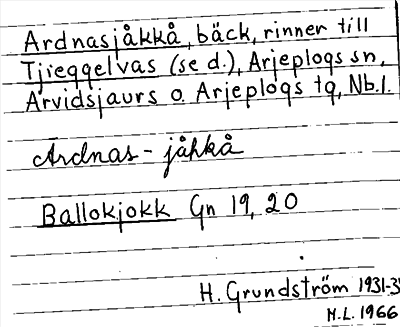 Ardnasjåkkå, bäck, rinner till
Tjieggelvas (se d.), Arjeplogs sn,
Arvidsjaurs o. Arjeplogs tg, Nb.l.
Ardnas-jåhkå
Ballokjokk Gn 19, 20
H. Grundström 1931-3
H.L. 1966